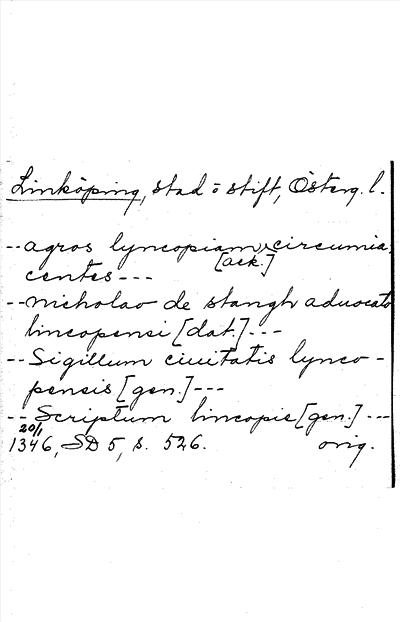 Linköping, stad o stift, Österg. l.
-- agros lyncopiam circumia
[ack.]
centes ---
-- nicholao de stangh aduocato
lincopensi [dat.] ---
-- Sigillum ciuitatis lynco-
pensis [gen.] ---
-- Scriptum lincopie [gen.] ---
20/1
1346, SD 5, s. 526. orig.